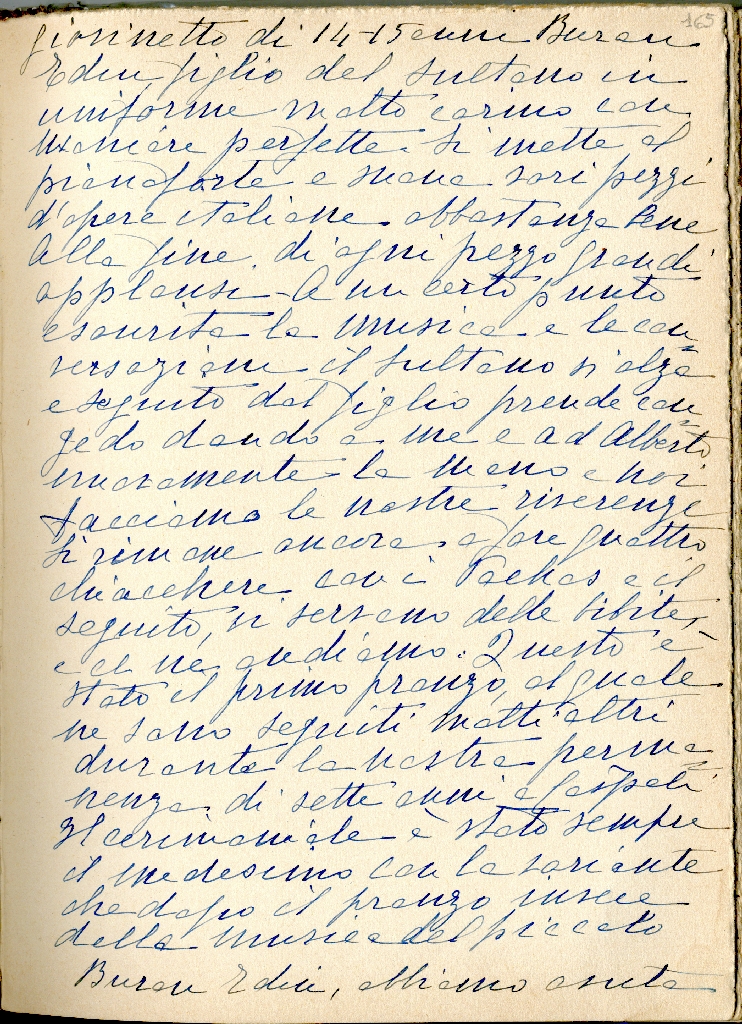 165
giovinetto di 14-15 anni Buran
Edin, figlio del sultano in
uniforme molto carino con
maniere perfette. Si mette al
pianoforte e suona vari pezzi
d'opere italiane abbastanza bene
Alla fine di ogni pezzo grandi
applausi - A un certo punto
esaurita la musica e le con
versazioni il sultano si alza
e seguito dal figlio prende con
gedo dando a me e ad Alberto
nuovamente la mano e noi
facciamo le nostre riverenze
Si rimane ancora a fare quattro
chiacchere con i Pachas e il
seguito, si servono delle bibite,
e ce ne andiamo. Questo è
stato il primo pranzo, al quale
ne sono seguiti molti altri
durante la nostra perma
nenza di sette anni a Cospoli
Il cerimoniale è stato sempre
il medesimo con la variante
che dopo il pranzo invece
della musica del piccolo
Buran Edin, abbiamo avuto